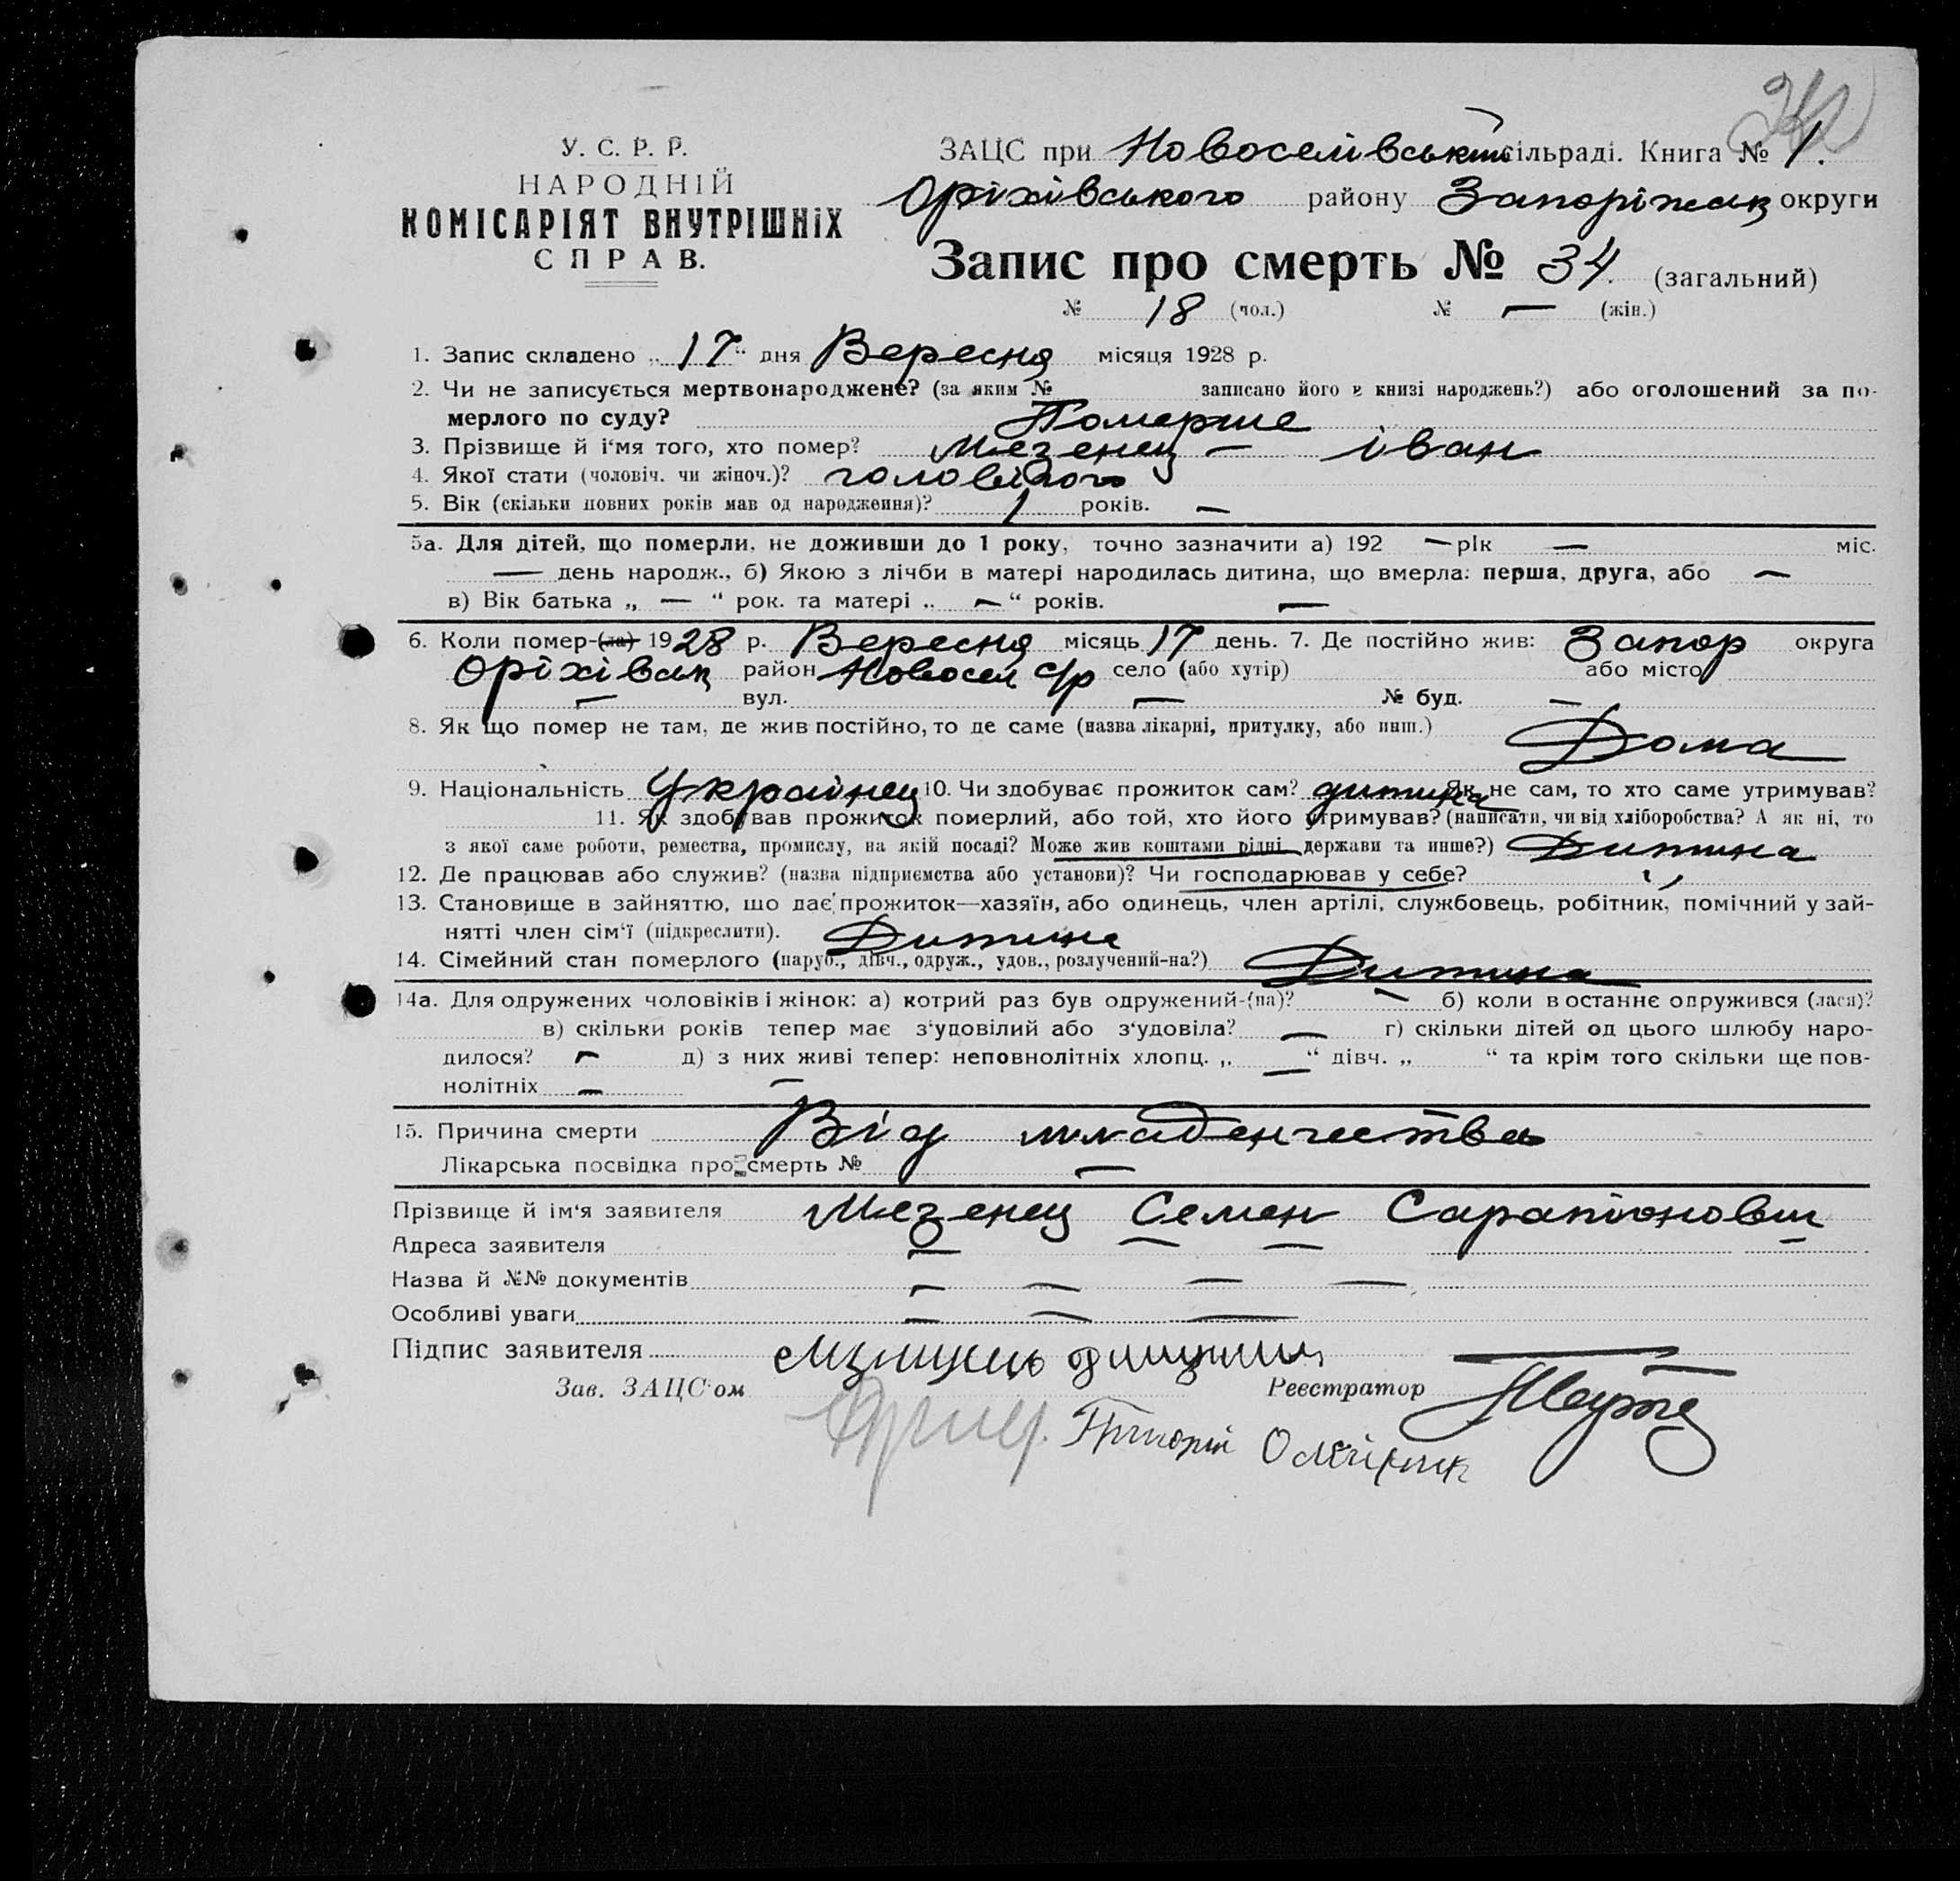 У. С. Р. Р.
НАРОДНІЙ
КОМІСАРІЯТ ВНУТРІШНІХ
СПРАВ.
ЗАЦС при Новоселівській сільраді. Книга № 1.
Оріхівського району Запоріжськ округи
Запис про смерть № 34. (загальний)
№ 18 (чол.) № — (жін.)
1. Запис складено „17“ дня Вересня місяця 1928 р.
2. Чи не записується мертвонароджене? (за яким № записано його в книзі народжень?) або оголошений за по-
мерлого по суду? Померше
3. Прізвище й і'мя того, хто помер? Мезенец — іван
4. Якої стати (чоловіч. чи жіноч.)? чоловічого
5. Вік (скільки повних років мав од народження)? 1 років. —
5а. Для дітей, що померли, не доживши до 1 року, точно зазначити а) 192 — рік — міс.
— день народж., б) Якою з лічби в матері народилась дитина, що вмерла: перша, друга, або —
в) Вік батька „ — “ рок. та матері „ — “ років. —
6. Коли помер-(ла) 1928 р. Вересня місяць 17 день. 7. Де постійно жив: Запор округа
Оріхівськ район Новосел с/р село (або хутір) або місто
— вул. — № буд. —
8. Як що помер не там, де жив постійно, то де саме (назва лікарні, притулку, або инш.) Дома
9. Національність Українец 10. Чи здобуває прожиток сам? дитина Як не сам, то хто саме утримував?
11. Як здобував прожиток померлий, або той, хто його утримував? (написати, чи від хліборобства? А як ні, то
з якої саме роботи, ремества, промислу, на якій посаді? Може жив коштами рідні, держави та инше?) Дитина
12. Де працював або служив? (назва підприємства або установи)? Чи господарював у себе? „
13. Становище в зайняттю, що дає прожиток—хазяїн, або одинець, член артілі, службовець, робітник, помічний у зай-
нятті член сім'ї (підкреслити). Дитина
14. Сімейний стан померлого (паруб., дівч., одруж., удов., розлучений-на?) Дитина
14а. Для одружених чоловіків і жінок: а) котрий раз був одружений-(на)? — б) коли в останнє одружився (лася)?
в) скільки років тепер має з'удовілий або з'удовіла? — г) скільки дітей од цього шлюбу наро-
дилося? — д) з них живі тепер: неповнолітніх хлопц. „ — “ дівч. „ “ та крім того скільки ще пов-
нолітніх — —
15. Причина смерти Від младенчества
Лікарська посвідка про смерть № —
Прізвище й ім'я заявителя Мезенец Семен Сарапіонович
Адреса заявителя — — — —
Назва й №№ документів — — — —
Особливі уваги — — —
Підпис заявителя
Зав. ЗАЦС'ом Реєстратор
Григорій Олейник